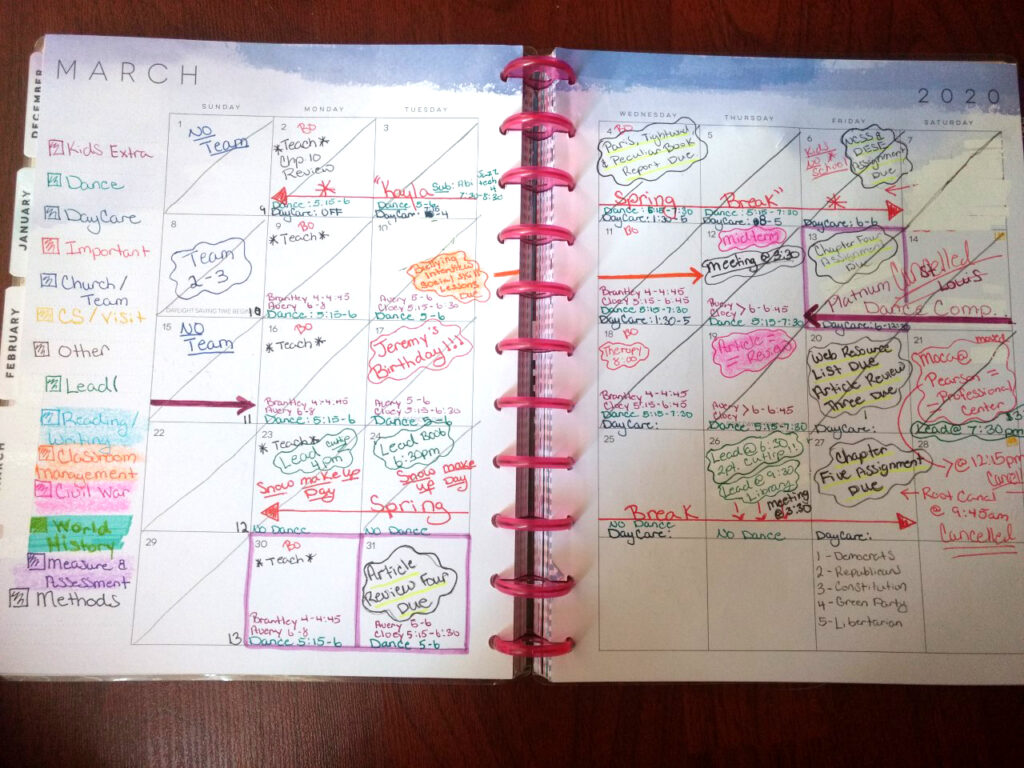 MARCH
2020
DECEMBER
JANUARY
FEBRUARY
Kids Extra
Dance
DayCare
Important
Church/
Team
CS/Visit
Other
Lead/
Reading/
Writing
Classroom
Management
Civil War
World
History
Measure &
Assessment
Methods
SUNDAY
MONDAY
TUESDAY
WEDNESDAY
THURSDAY
FRIDAY
SATURDAY
1
NO
Team
9
2
BO
*Teach*
Chp 10
Review
3
"Kayla
Dance: 5:15-6
DayCare: OFF
Dance 5-6
4
BO
Paris, Tightwad
& Peculiar Book
Report Due
5
6
Kids
NO
School
NCSS &
DESE
Assignment
Due
7
Spring Break"
Dance: 5:15-7:30
DayCare: 1:30-5
Dance: 5:15-7:30
DayCare: 6-6
8
Team
2-3
DAYLIGHT SAVING TIME BEGINS
10
9
BO
*Teach*
Brantley 4-4:45
Avery 6-8
Dance: 5:15-6
10
Bullying
Interview
Social Skill
Lessons
Due
Avery 5-6
Cloey 5:15-6:30
Dance 5-6
11
BO
Brantley 4-4:45
Cloey 5:15-6:45
Dance: 5:15-7:30
DayCare: 1:30-5
12
midterm
meeting @ 3:30
Avery > 6-6:45
Cloey
Dance: 5:15-7:30
13
Chapter Four
Assignment
Due
14
Cancelled
Platinum St. Louis
Dance Comp.
15
NO
Team
11
16
BO
*Teach*
Brantley 4-4:45
Avery 6-8
Dance: 5:15-6
17
Jeremy's
Birthday!!!
Avery 5-6
Cloey 5:15-6:30
Dance 5-6
18
BO
Therapy
8:00
Brantley 4-4:45
Cloey 5:15-6:45
Dance: 5:15-7:30
DayCare:
19
Article
Review
Avery > 6-6:45
Cloey
Dance: 5:15-7:30
20
Web Resource
List Due
Article Review
Three Due
DayCare:
21
moved
Moca @
Pearson =
Professional
Center
Lead @ 7:30pm
22
12
23
*Teach*
Lead
4pm
Snow make up
Day
24
Lead
6:30pm
Snow make
up Day
Spring
NO Dance
NO Dance
25
26
Lead @ 6:30
Lead @ 9:30
Library
meeting
@ 3:30
27
Chapter
Five Assignment
Due
28
@ 12:15pm
Cancel
Root Canal
@ 9:45am
Cancelled
Break
NO Dance
DayCare:
NO Dance
DayCare:
29
13
30
BO
*Teach*
Brantley 4-4:45
Avery 6-8
Dance 5:15-6
31
Article
Review Four
Due
Avery 5-6
Cloey 5:15-6:30
Dance 5-6
1-Democrats
2-Republican
3-Constitution
4-Green Party
5-Libertarian